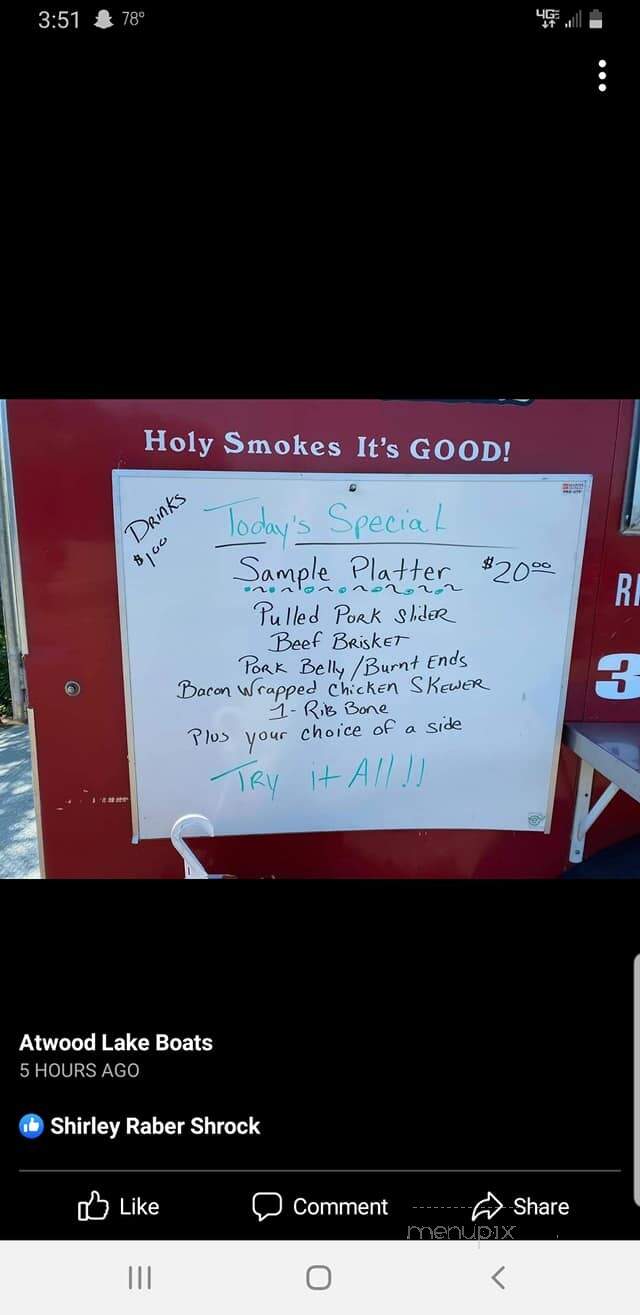 3:51 78°
4GE
Holy Smokes It's GOOD!
DRINKS
$1.00
Today's Special
Sample Platter $20.00
Pulled Pork SlideR
Beef BRisket
Pork Belly / Burnt Ends
Bacon Wrapped Chicken SKEWER
1- Rib Bone
Plus your choice of a side
TRY it All!!
3
Atwood Lake Boats
5 HOURS AGO
Shirley Raber Shrock
Like Comment Share
menupix